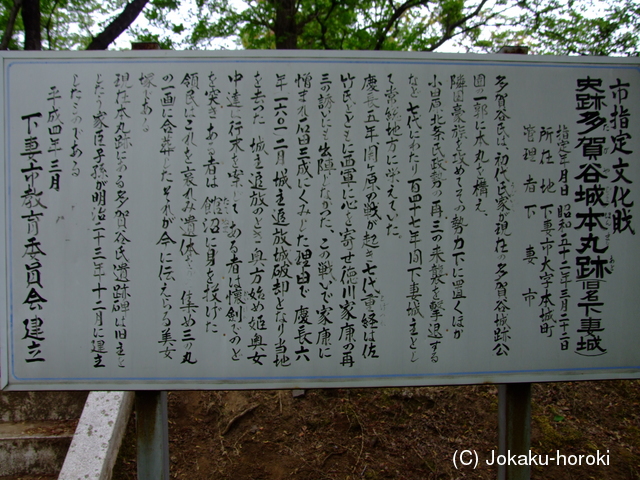 市指定文化財
史跡多賀谷城本丸跡(旧名下妻城)
指定年月日 昭和五十二年三月二十二日
所在地 下妻市大字本城町
管理者 下妻市
多賀谷氏は、初代氏家が現在の多賀谷城跡公
園の一郭に本丸を構え
隣国豪族を攻めてその勢力下に置くほか
小田原北条氏政勢の再三の来襲を撃退する
など七代にわたり百四十七年間下妻城主とし
て常総地方に栄えていた。
慶長五年関ヶ原の戦が起き七代重経は佐
竹氏とともに西軍に心を寄せ徳川家康の再
三の誘いにも出陣しなかった。この戦いで家康に
憎まれ石田三成にくみした理由で慶長六
年一六〇一二月城主追放城破却となり当地
を去った 城主追放のとき奥方始め姫奥女
中達に行末を案じて ある者は懐剣でのど
を突きある者は館沼に身を投げた
領民はこれを哀れみ遺体を 集め三の丸
の一画に合葬したそれが今に伝えられる美女
塚である
現在本丸跡にある多賀谷氏遺跡碑は旧主を
したう家臣子孫が明治二十三年十二月に建立
したものである
平成四年三月
下妻市教育委員会建立
(C) Jokaku-horoki